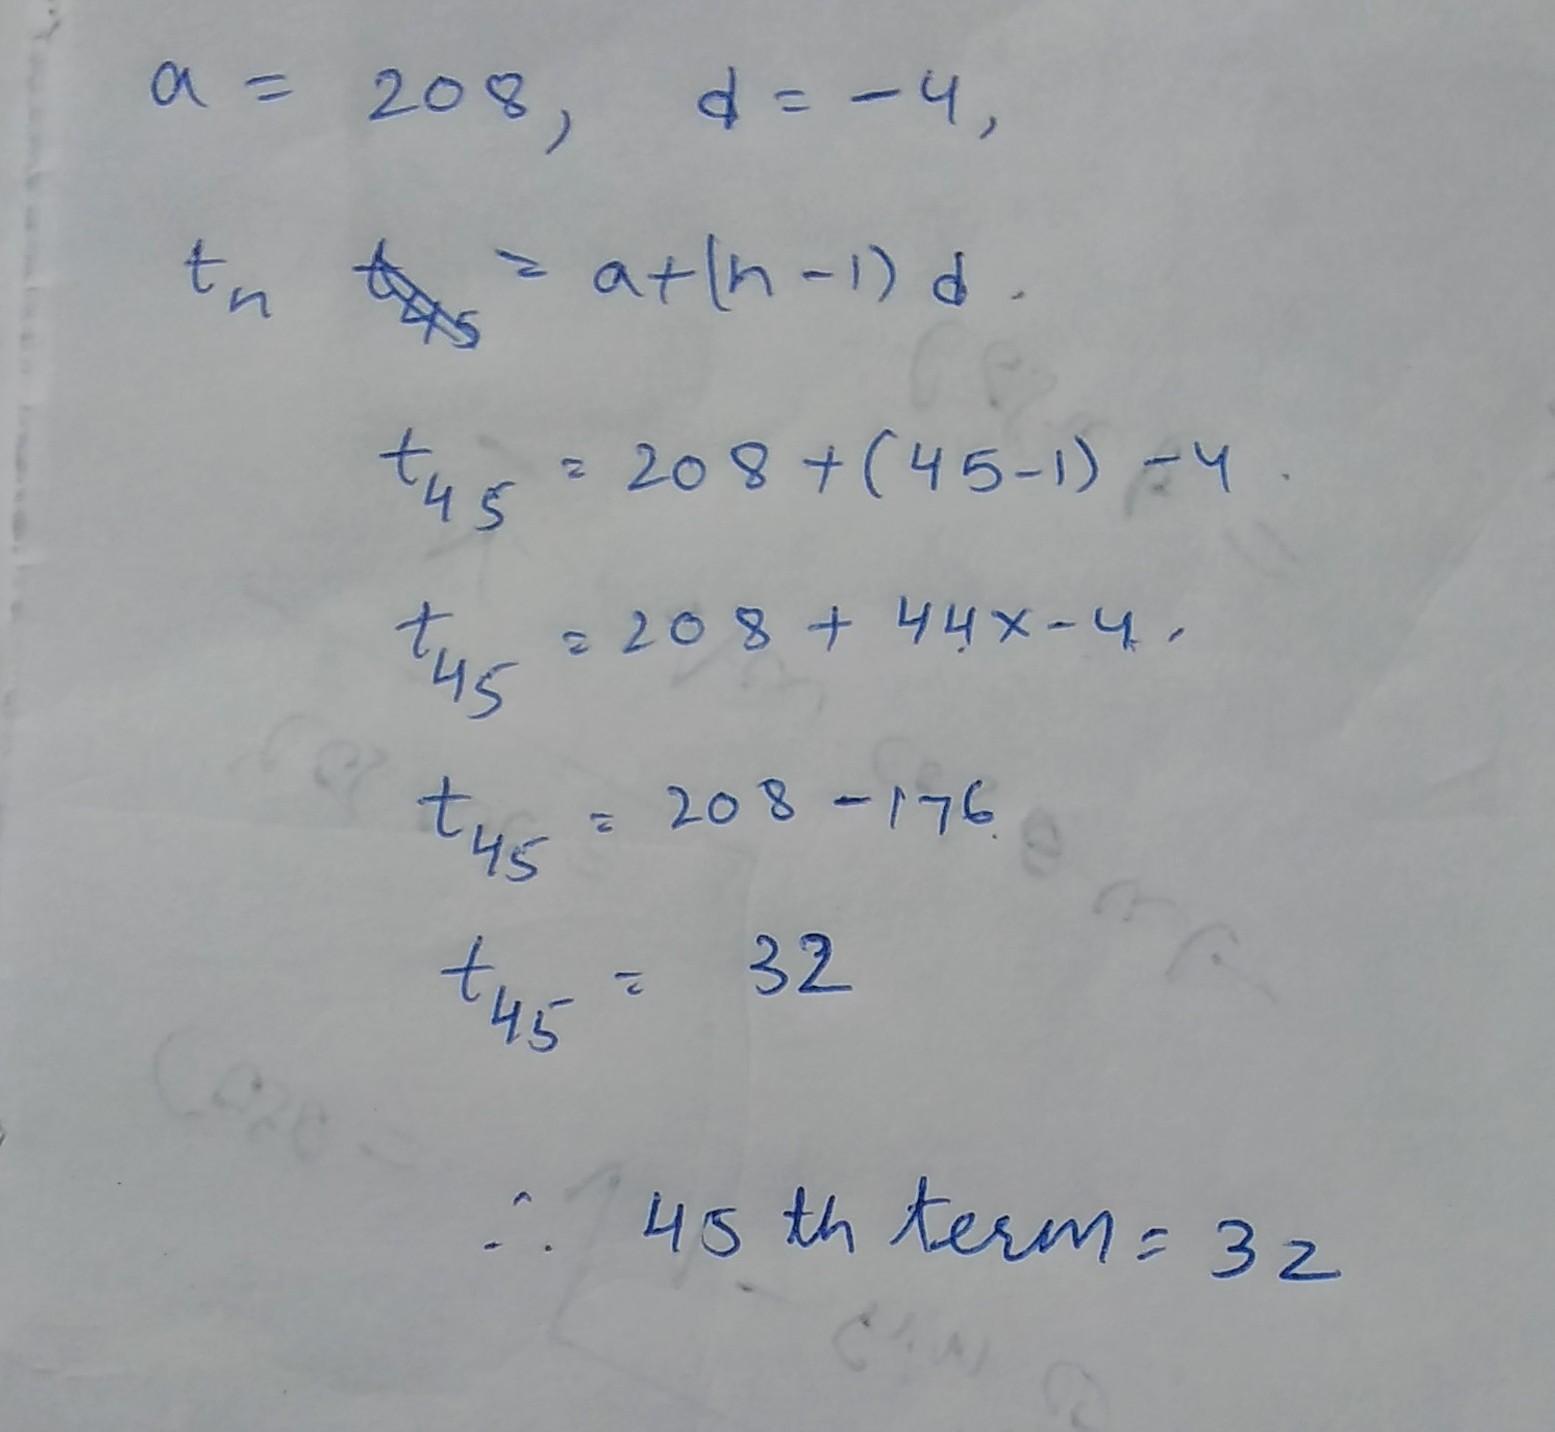 a = 208, d = -4,
tn = a+(n-1) d.
t45 = 208 +(45-1) -4.
t45 = 208 + 44x-4.
t45 = 208 -176.
t45 = 32
∴ 45 th term = 32